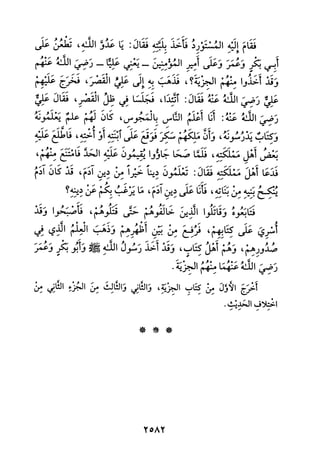 فَقَامَ إِلَيْهِ المُسْتَوْرِدُ فَأَخَذَ بِلَبَّتِهِ فَقَالَ: يَا عَدُوَّ اللَّهِ، تَطْعُنُ عَلَى
أَبِي بَكْرٍ وَعُمَرَ وَعَلَى أَمِيرِ المُؤْمِنِينَ ــ يَعْنِي عَلِيًّا ــ رَضِيَ اللَّهُ عَنْهُم
وَقَدْ أَخَذُوا مِنْهُمُ الجِزْيَةَ؟، فَذَهَبَ بِهِ إِلَى عَلِيٍّ القَصْرَ، فَخَرَجَ عَلَيْهِمْ
عَلِيٌّ رَضِيَ اللَّهُ عَنْهُ فَقَالَ: اتَّئِدَا، فَجَلَسَا فِي ظِلِّ القَصْرِ، فَقَالَ عَلِيٌّ
رَضِيَ اللَّهُ عَنْهُ: أَنَا أَعْلَمُ النَّاسِ بِالْمَجُوسِ، كَانَ لَهُمْ عِلمٌ يَعْلَمُونَهُ
وَكِتَابٌ يَدْرُسُونَهُ، وَأَنَّ مَلِكَهُمْ سَكِرَ فَوَقَعَ عَلَى ابْنَتِهِ أَوْ أُخْتِهِ، فَاطَّلَعَ عَلَيْهِ
بَعْضُ أَهْلِ مَمْلَكَتِهِ، فَلَمَّا صَحَا جَاؤُوا يُقِيمُونَ عَلَيْهِ الحَدَّ فَامْتَنَعَ مِنْهُمْ،
فَدَعَا أَهْلَ مَمْلَكَتِهِ فَقَالَ: تَعْلَمُونَ دِيناً خَيْراً مِنْ دِينِ آدَمَ، قَدْ كَانَ آدَمُ
يُنْكِحُ بَنِيهِ مِنْ بَنَاتِهِ، فَأَنَا عَلَى دِينِ آدَمَ، مَا يَرْغَبُ بِكُمْ عَنْ دِينِهِ؟
فَتَابَعُوهُ وَقَاتَلُوا الَّذِينَ خَالَفُوهُمْ حَتَّى قَتَلُوهُمْ، فَأَصْبَحُوا وَقَدْ
أُسْرِيَ عَلَى كِتَابِهِمْ، فَرُفِعَ مِنْ بَيْنِ أَظْهُرِهِمْ وَذَهَبَ الْعِلْمُ الَّذِي فِي
صُدُورِهِمْ، وَهُمْ أَهْلُ كِتَابٍ، وَقَدْ أَخَذَ رَسُولُ اللَّهِ ﷺ وَأَبُو بَكْرٍ وَعُمَرَ
رَضِيَ اللَّهُ عَنْهُمَا مِنْهُمُ الجِزْيَةَ.
أَخْرَجَ الأَوَّلَ مِنْ كِتَابِ الجِزْيَةِ، وَالثَّانِي وَالثَّالِثَ مِنَ الجُزْءِ الثَّانِي مِنَ
اخْتِلافِ الحَدِيْثِ.
* * *
٢٥٨٢